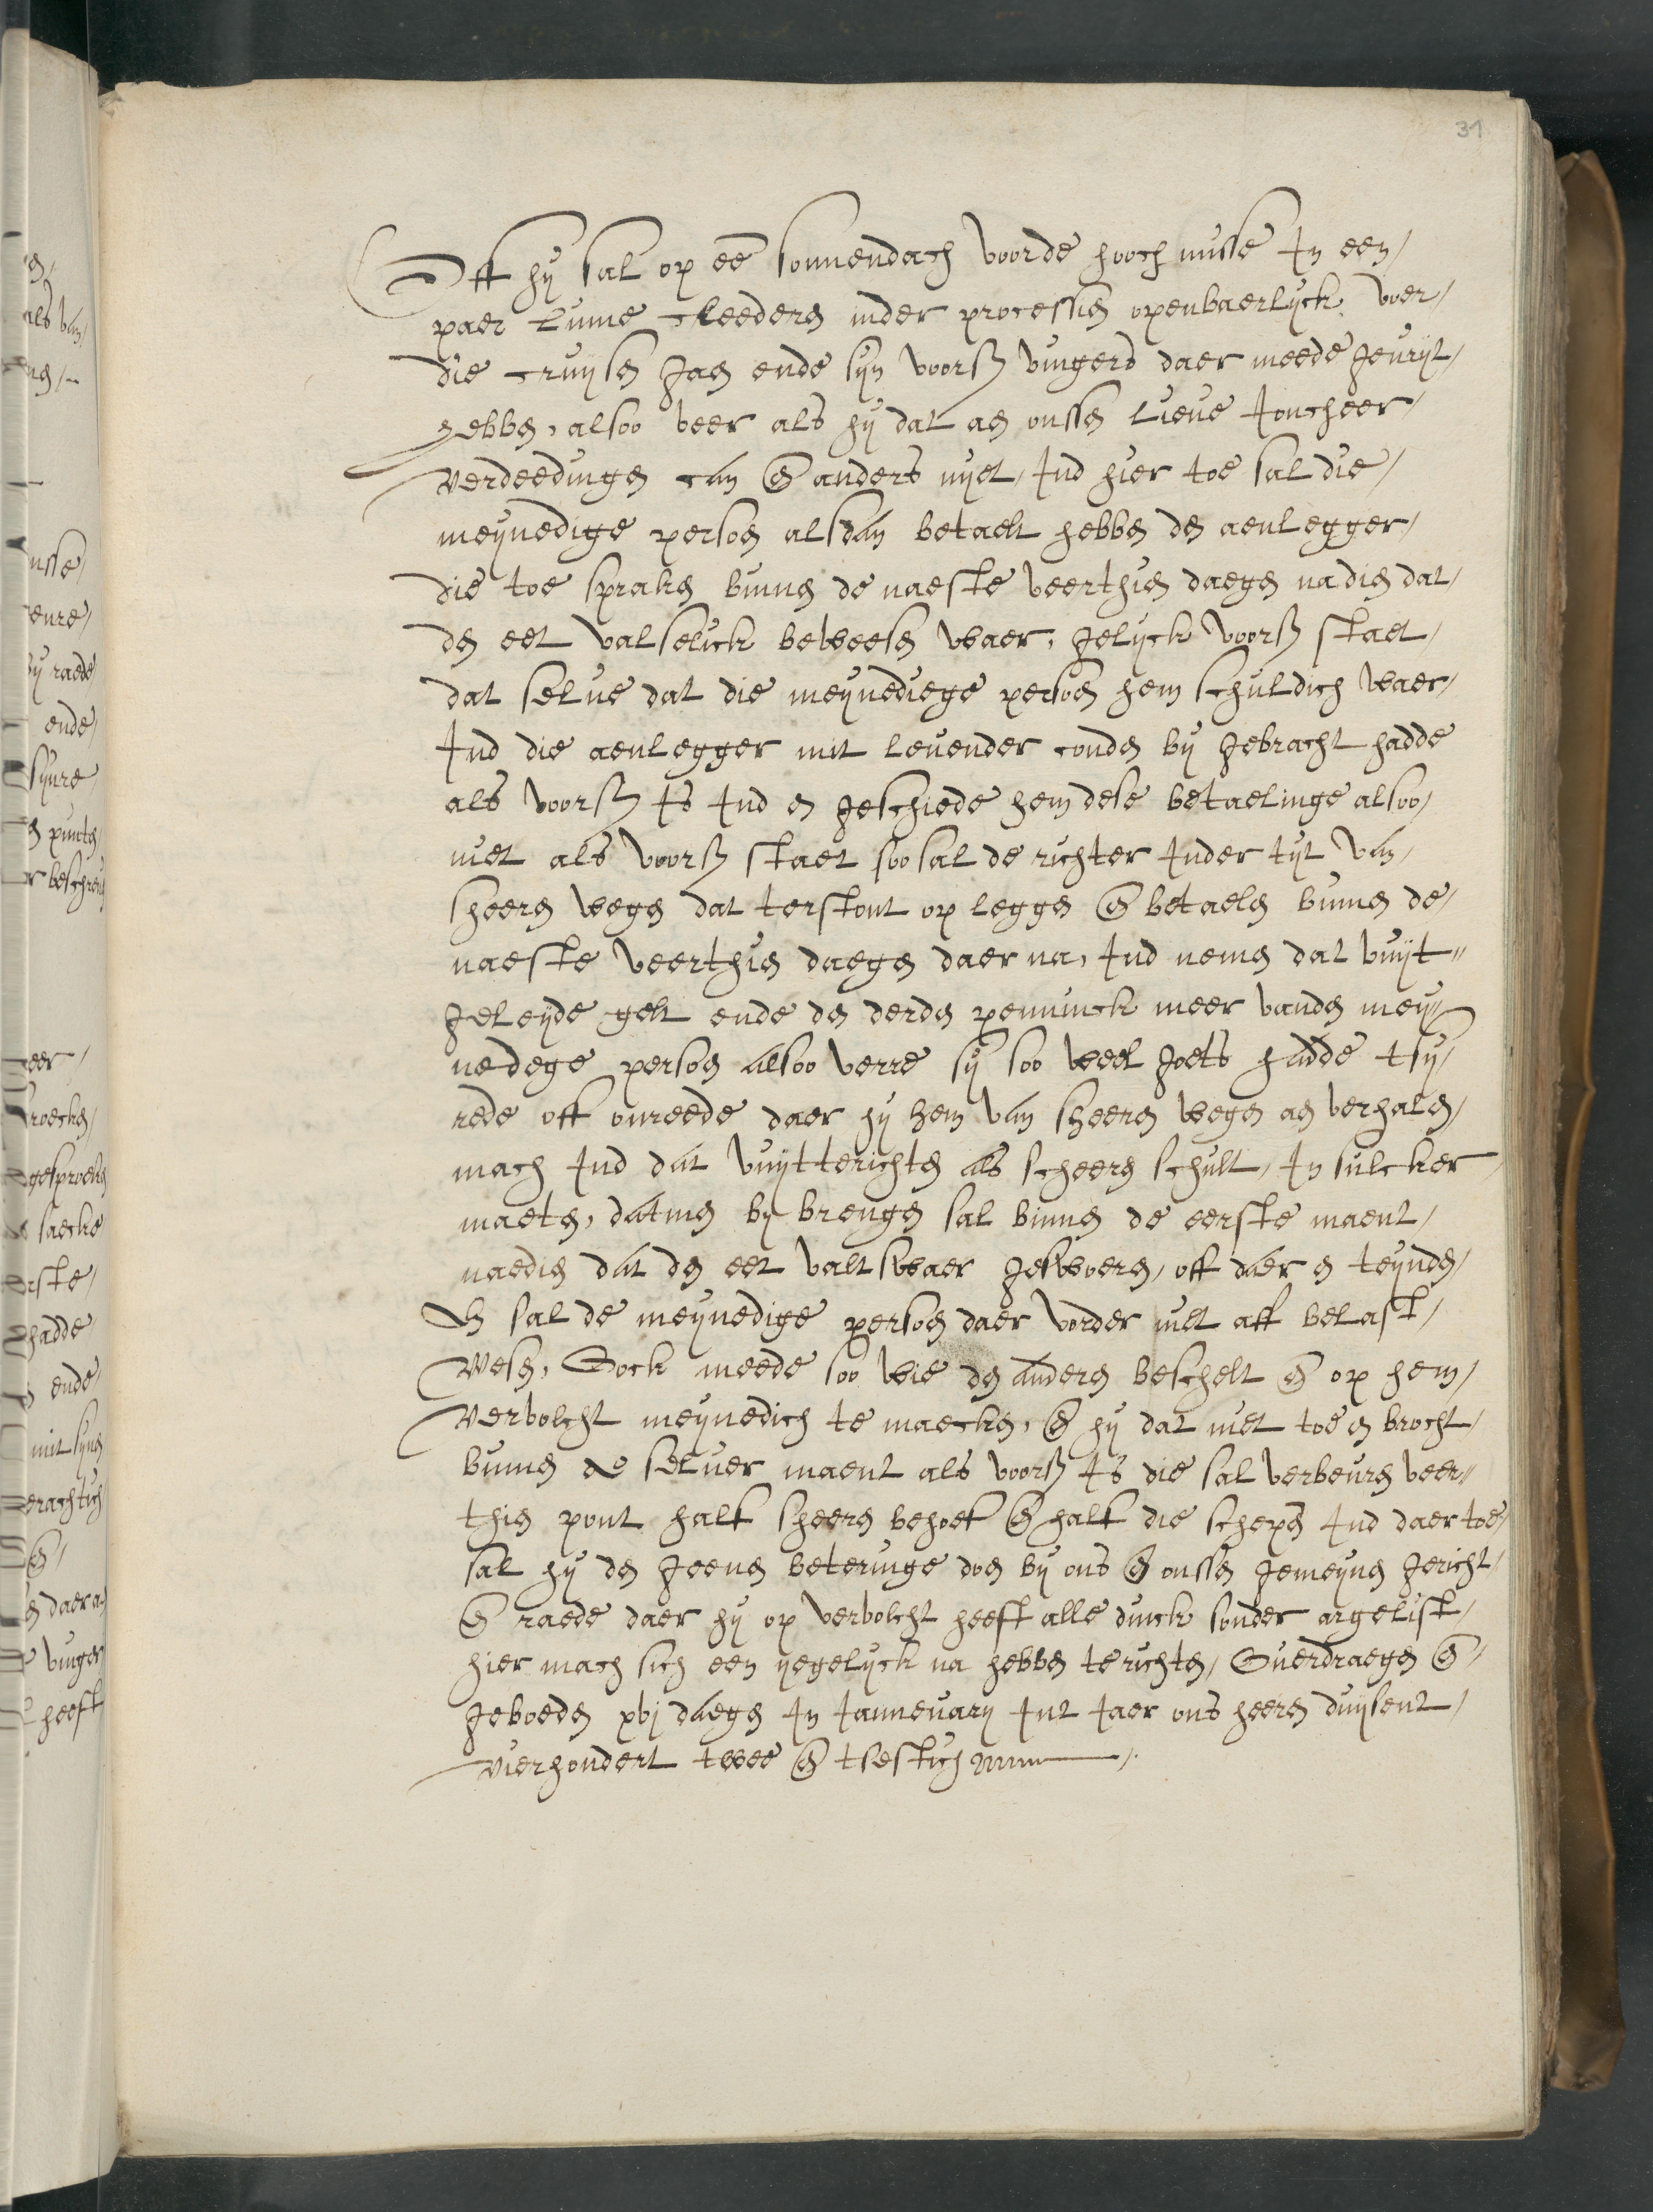 31
Off hy sal op eē sonnendach voorde hooch misse In een
paer Linne cleederen inder processien openbaerlyck voer
die cruysen gaen ende syn voorß vingers daer meede gevryt
hebben, alsoo veer als hy dat aen onssen Lieve Joncheer
verdeedingen can eñ anders nyet, Ind hier toe sal die
meynedige persoen alsdan betaelt hebben den aenlegger
die toe spraken binnen de naeste veerthien daegen nadien dat
den eet valselick beweesen waer, gelyck voorß staet
dat selve dat die meynediege persoen hem schuldich waer
Ind die aenlegger mit levender conden by gebracht hadde
als voorß Is Ind en geschiede hem dese betaelinge alsoo
niet als voorß staet soo sal de richter Inder tyt van
sheeren wegen dat terstont op leggen eñ betaelen binnen de
naeste veerthien daegen daer na, Ind nemen dat vuyt"
geleyde gelt ende den derden penninck meer vanden mey"
nedege persoen alsoo verre sy soo veel goets hadde tsy
rede off onreede daer hy hem van sheeren wegen aen verhalen
mach Ind dat vuytterichten als scheeren schult, In sulcker
maeten, datmen by brengen sal binnen de eerste maent
naedien dat den eet valt swaer geswoeren, off daer en teynden
En sal de meynedige persoen daer vorder niet aff belast
wesen, Oock meede soo wie den anderen beschelt eñ op hem
vervolcht meynedich te maecken, eñ hy dat niet toe en brocht
binnen de selver maent als voorß Is die sal verbeuren veer"
thien pont halff sheeren behoeff eñ halff die schepen Ind daer toe
sal hy den geenen beteringe doen by ons eñ onssen gemeynen gericht
eñ raede daer hy op vervolcht heeft alle dinck sonder argelist
hier mach sich een yegelyck na hebben te richten, Overdraegen eñ
geboeden xvj daegen In Jannevary Int Jaer ons heeren duysent
vierhondert twee eñ tsestich